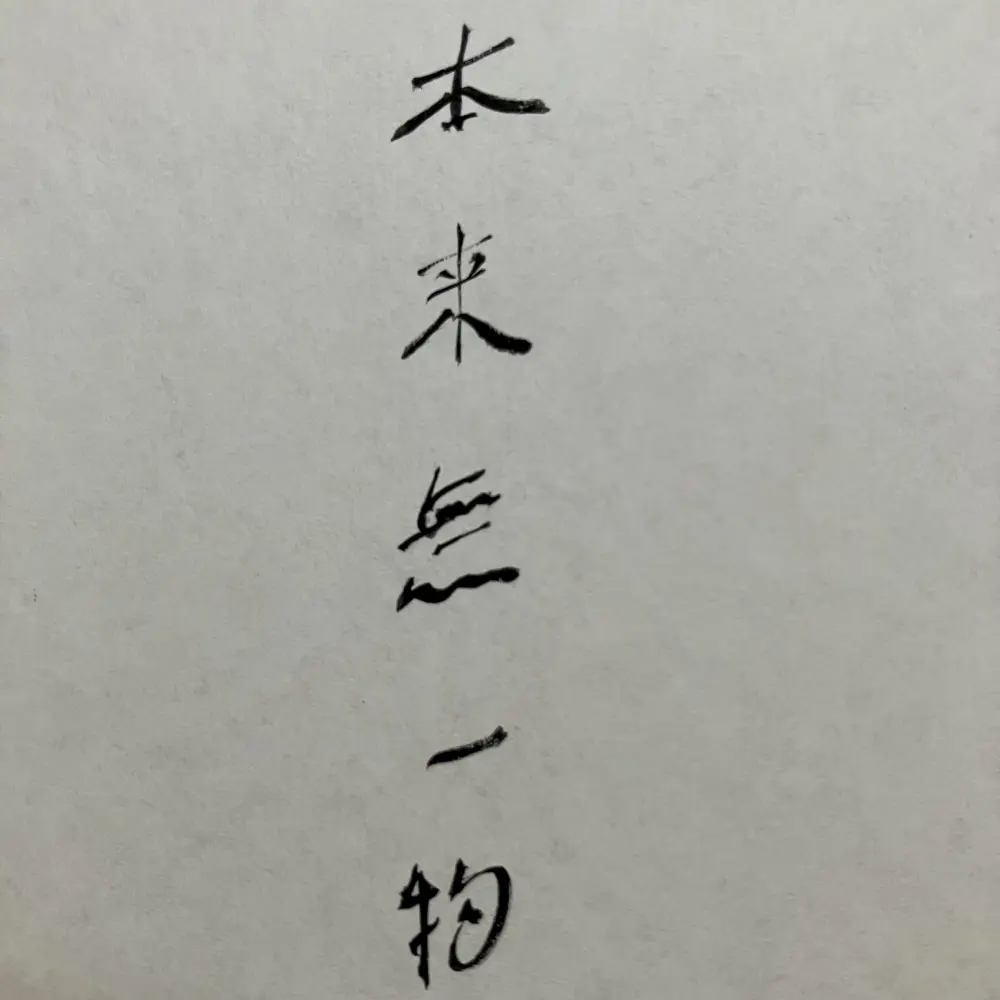 本来無一物